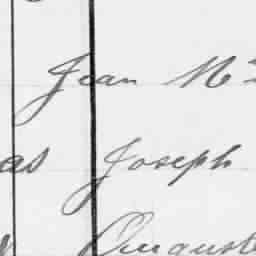 Jean M
as Joseph
August